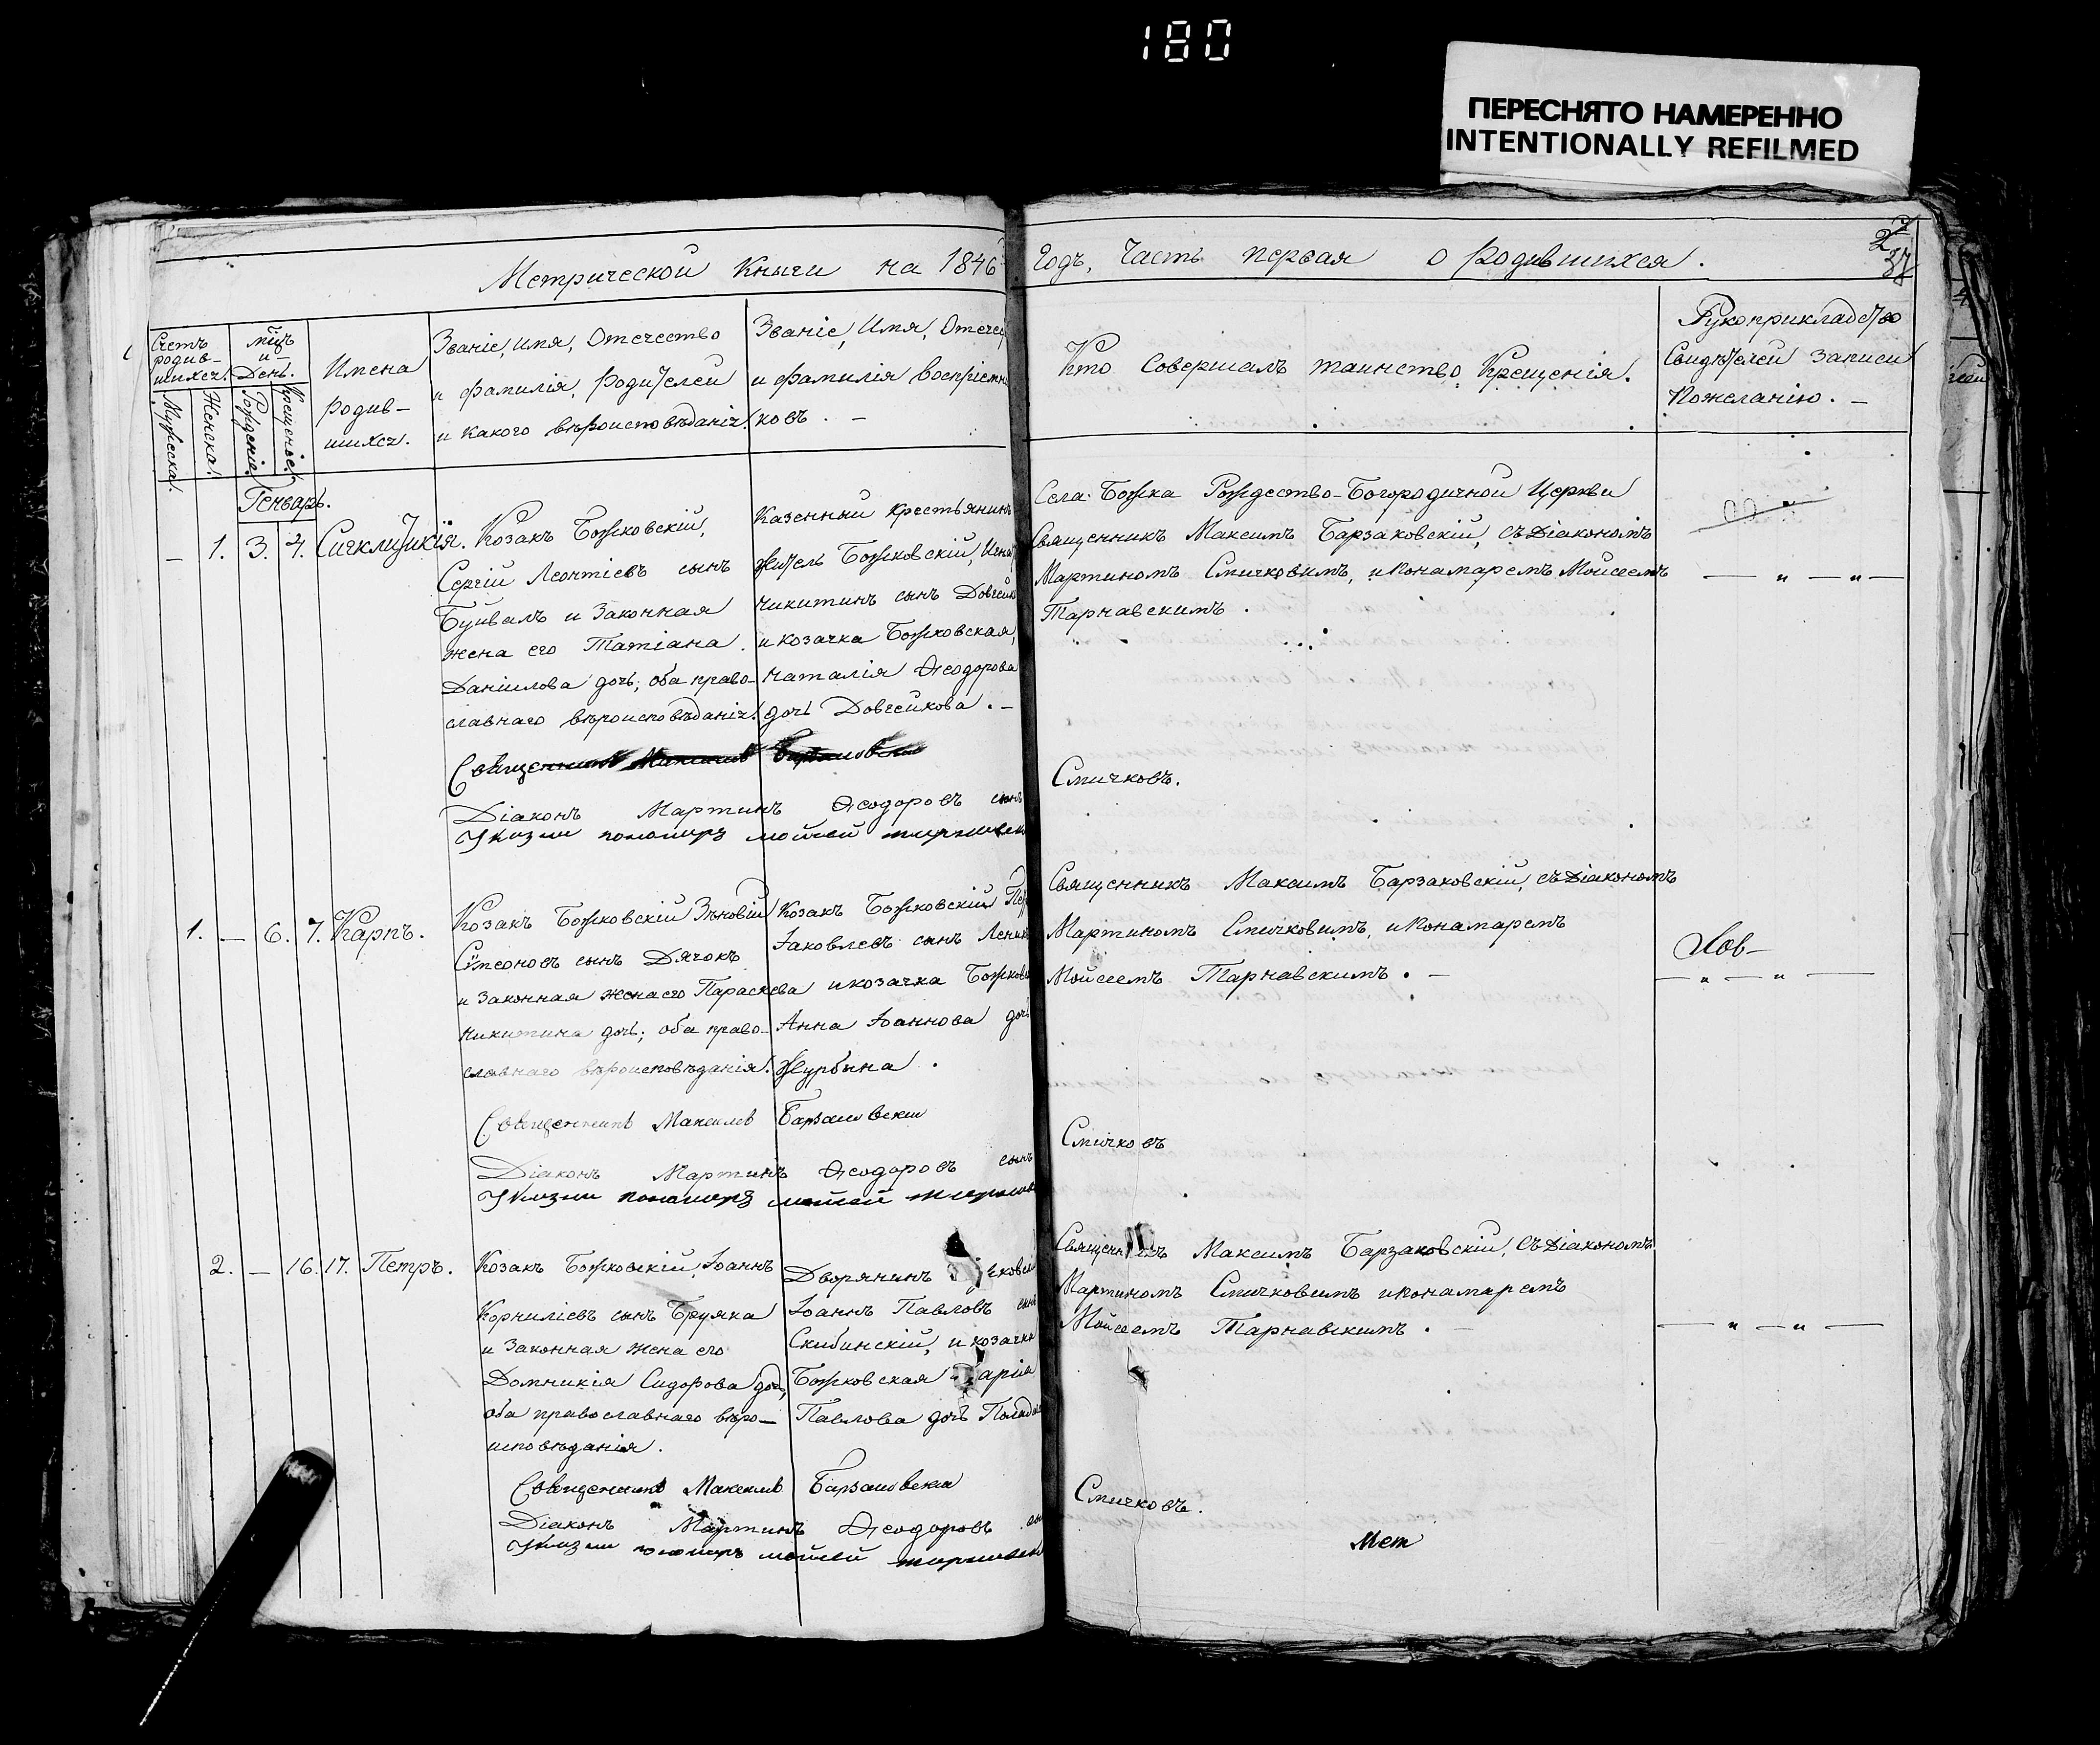 180
ПЕРЕСНЯТО НАМЕРЕННО
INTENTIONALLY REFILMED
Метрической Книги на 1846
Годъ, Часть первая о Родившихся.
37
Счетъ родив-шихся.
Мужеска.
Женска.
мцъ и День.
Рожденія.
Крещенія.
Имена
родив-
шихся.
Званіе, имя, Отечество
и фамилія, Родителей
и какого вѣроисповѣданія.
Званіе, Имя, Отечес
и фамилія Воспріемни
ковъ. –
Кто Совершалъ таинство Крещенія.
Рукоприкладство
Свидѣтелей записи
Пожеланію. –
Генварь.
– 1. 3. 4. Сигклитикія.
Козакъ Божковскій,
Сергій Леонтіевъ сынъ
Буйвалъ и Законная
жена его Татіана
Даніилова дочь; оба право-
славнаго вѣроисповѣданія.
Казенный крестьянинъ
житель Божковскій,
Никитинъ сынъ
и козачка Божковская,
Наталія Ѳеодорова
дочь Довгейкова. –
Села Божка Рождество-Богородичной Церкви
Священникъ Максимъ Барзаковскій, съ Діакономъ
Мартиномъ Смичковимъ, и Понамаремъ Мойсеемъ
Тарнавскимъ.
— „ — „ —
Священникъ Максимъ
Діаконъ Мартинъ Ѳеодоровъ сынъ
Смичковъ.
пономарь мойсей
1. – 6. 7. Карпъ.
Козакъ Божковскій Зѣновій
Сѵмеоновъ сынъ Дячокъ
и Законная жена его Параскева
Никитина дочь; оба право-
славнаго вѣроисповѣданія.
Козакъ Божковскій
Іаковлевъ сынъ
и козачка Божков
Анна Іоаннова дочь
Журбина.
Священникъ Максимъ Барзаковскій, съ Діакономъ
Мартиномъ Смичковимъ, и Понамаремъ
Мойсеемъ Тарнавскимъ. –
— „ — „ —
Священникъ Максимъ Барзаковскій
Діаконъ Мартинъ Ѳеодоровъ сынъ
Смичковъ
пономарь мойсей
2. – 16. 17. Петръ.
Козакъ Божковскій, Іоаннъ
Корниліевъ сынъ Бруяка
и Законная Жена его
Домникія Сидорова дочь,
оба православнаго вѣро-
исповѣданія.
Дворянинъ
Іоаннъ Павловъ сынъ
Скибинскій, и козачка
Божковская
Павлова дочь
Священникъ Максимъ Барзаковскій, съ Діакономъ
Мартиномъ Смичковимъ и понамаремъ
Мойсеемъ Тарнавскимъ. –
— „ — „ —
Священникъ Максимъ Барзаковскій
Діаконъ Мартинъ Ѳеодоровъ
Смичковъ.
пономарь мойсей
Мет